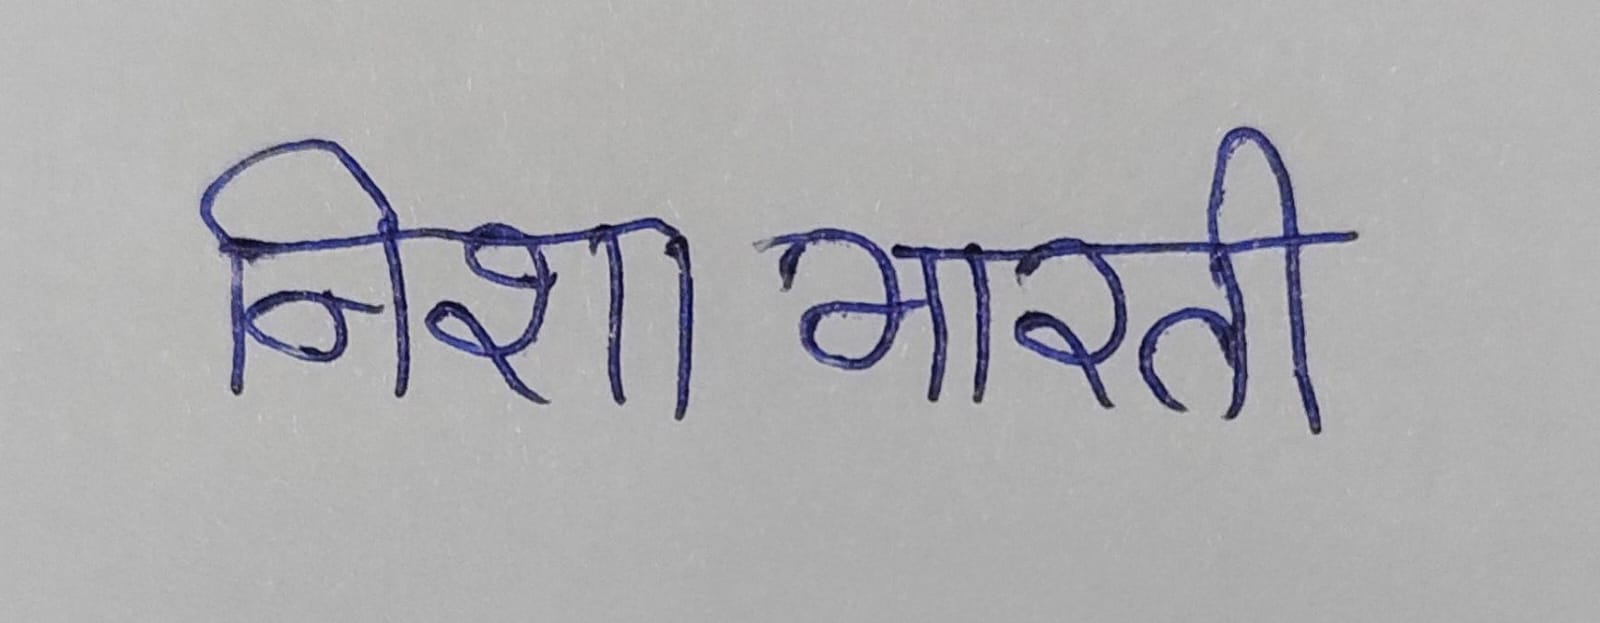 निशा भारती